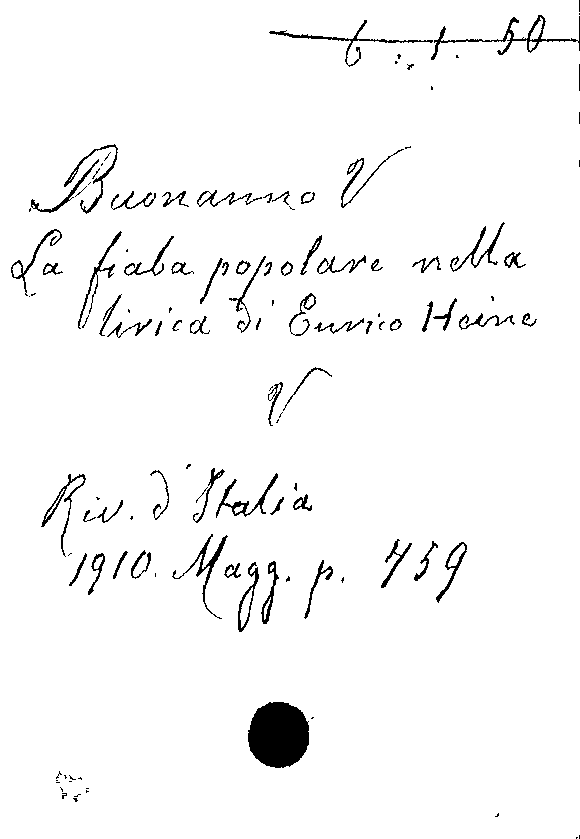 6. 1. 50
Buonanno V
La fiaba popolare nella
lirica di Enrico Heine
V
Riv. d'Italia
1910. Magg. p. 759